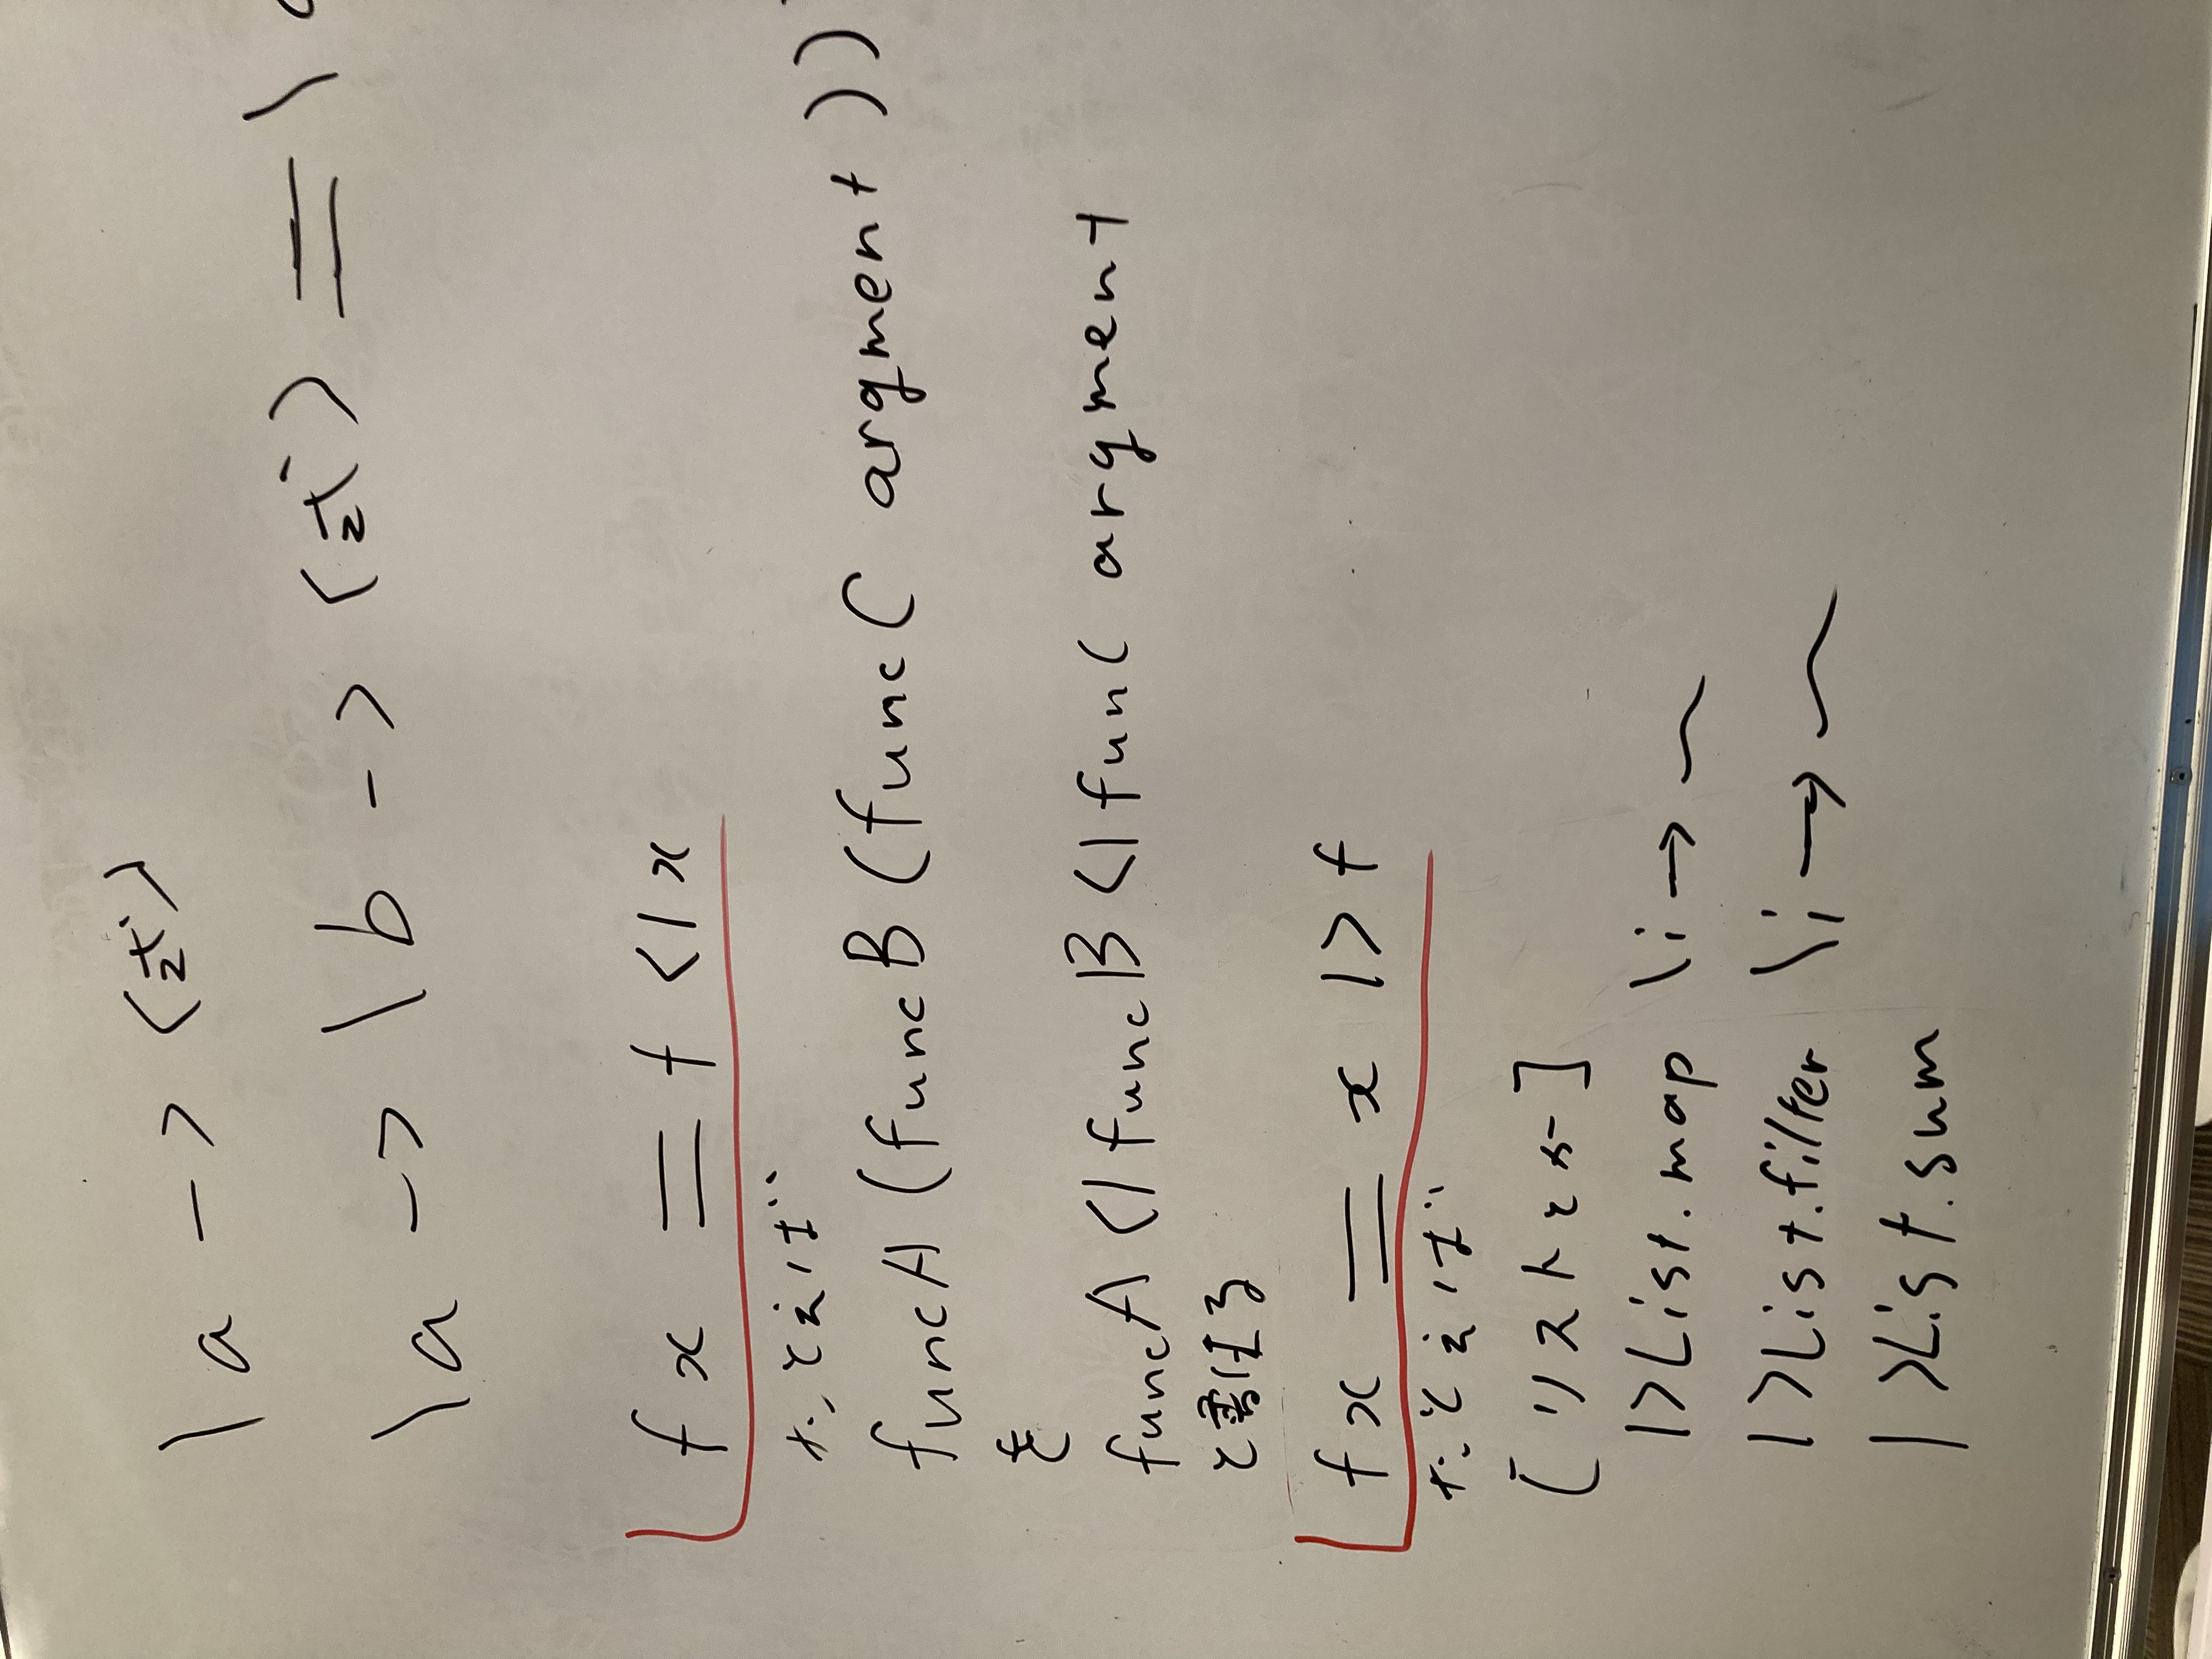 \a -> (式)
\a -> \b -> (式) = \
f x = f <| x
たとえば
funcA (funcB (funcC argment))
を
funcA <| funcB <| funC argment
と書ける
f x = x |> f
たとえば
[リストとか]
|>List.map \i → 〜
|>List.filter \i → 〜
|>List.sum